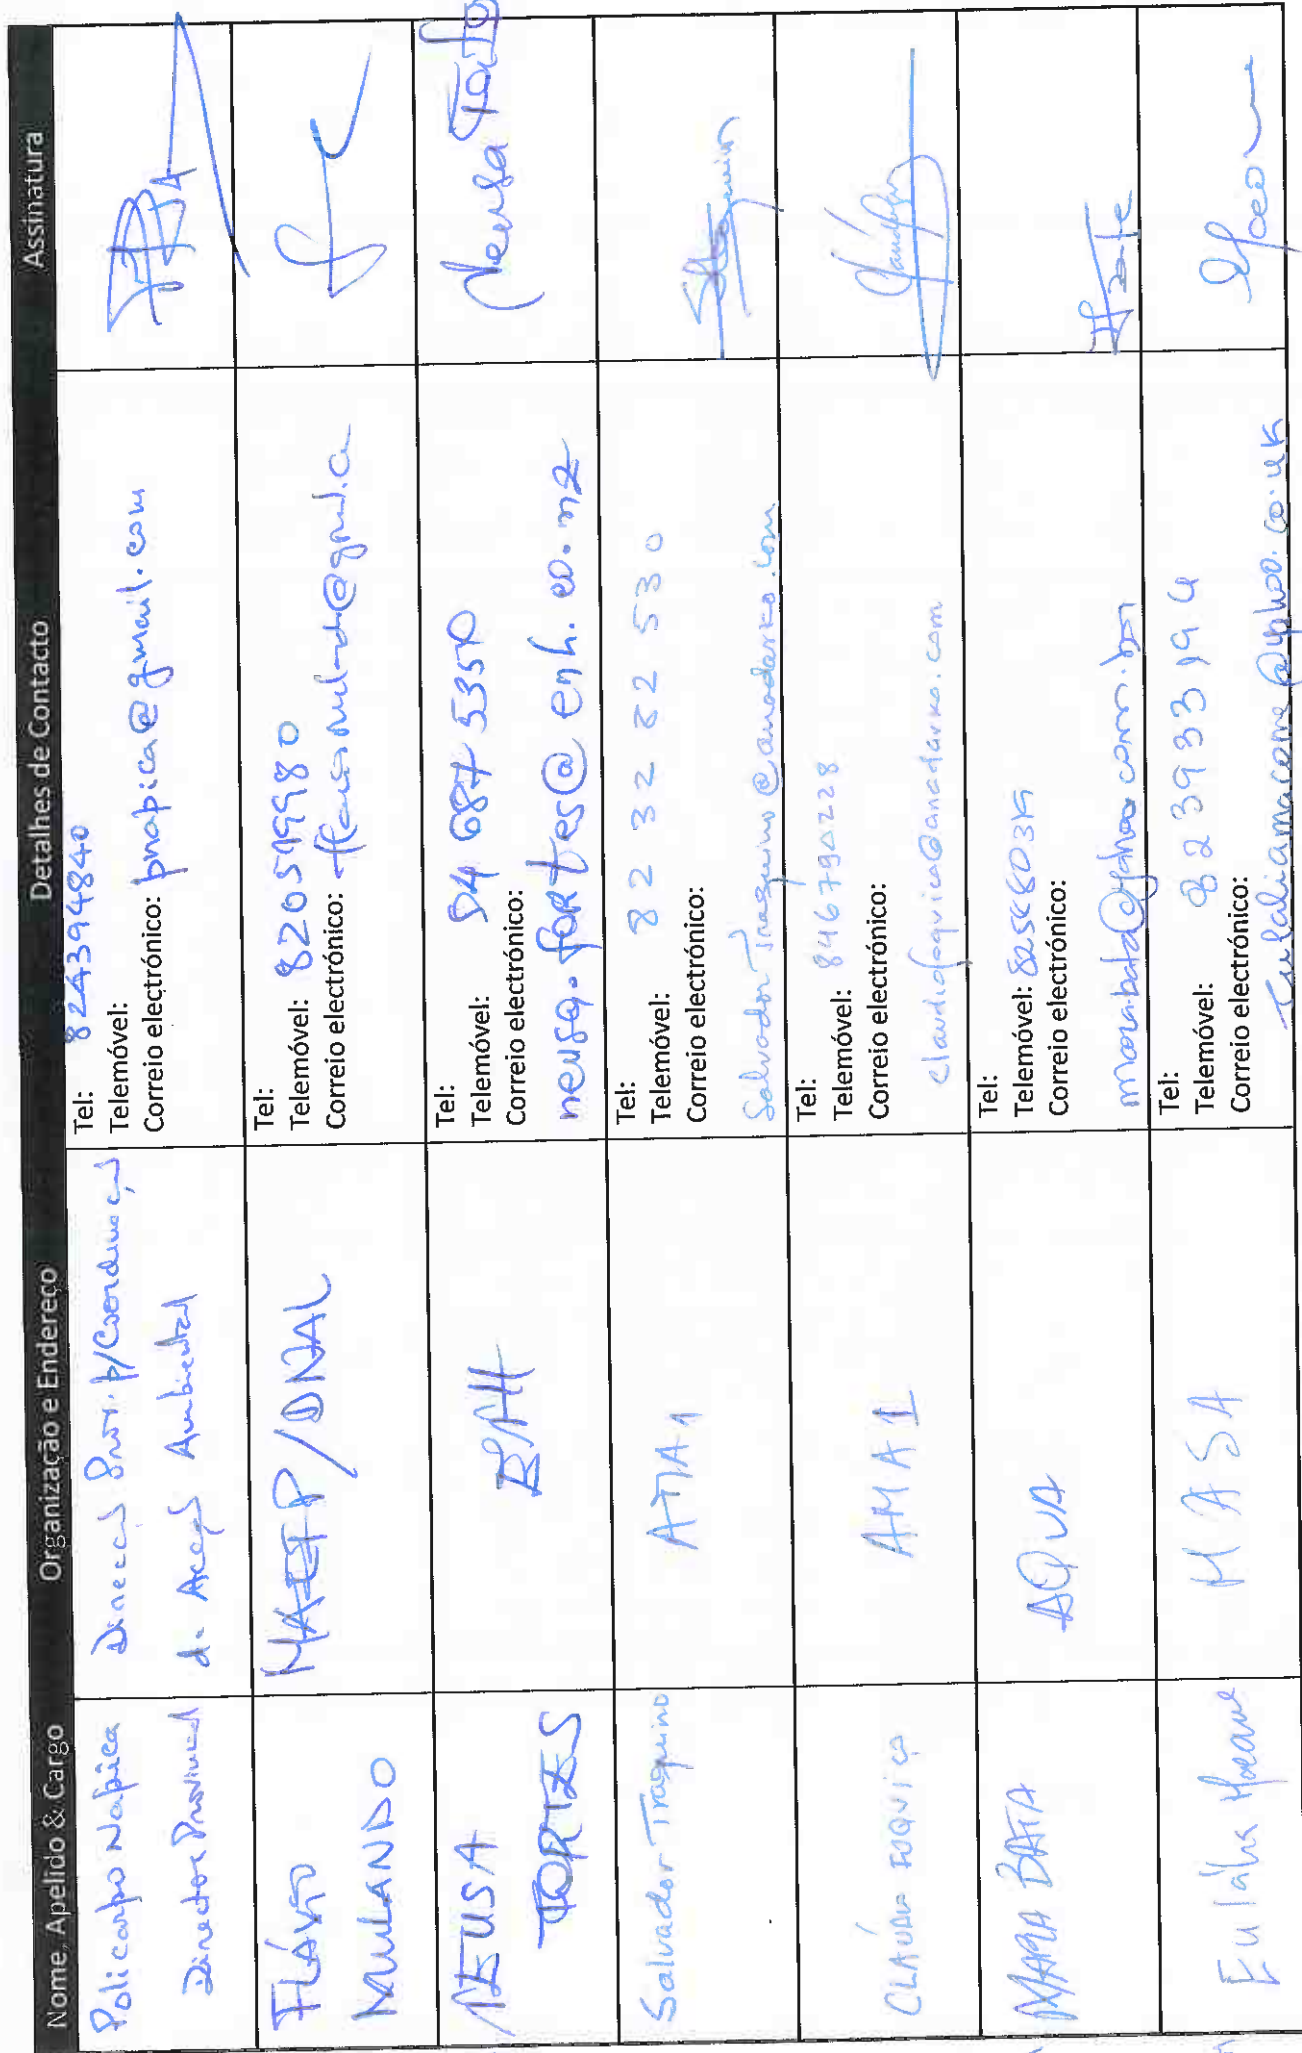 Nome, Apelido & Cargo Organização e Endereço Detalhes de Contacto Assinatura
Policarpo Napica
Director Provincial
Direcção Prov. p/Coordenação
de Acção Ambiental
Tel: 824394840
Telemóvel:
Correio electrónico: pnapica@gmail.com
FLÁVIO
MULANDO
MAEFP/DNAL
Tel:
Telemóvel: 820519980
Correio electrónico:
NEUSA
FORTES
ENH
Tel:
Telemóvel: 84 687 5350
Correio electrónico:
neusa.fortes@enh.co.mz
Neusa Fortes
Salvador Traquino
AMA1
Tel:
Telemóvel: 82 32 82 530
Correio electrónico:
Salvador.Traquino@anadarko.com
CLÁUDIO FOQUIÇO
AMA1
Tel:
Telemóvel: 846790228
Correio electrónico:
claudio.foquico@anadarko.com
MARA BATA
AQUA
Tel:
Telemóvel:
Correio electrónico:
Eulália Macome
MASA
Tel:
Telemóvel: 823933194
Correio electrónico:
Eulaliamacome@yahoo.co.uk